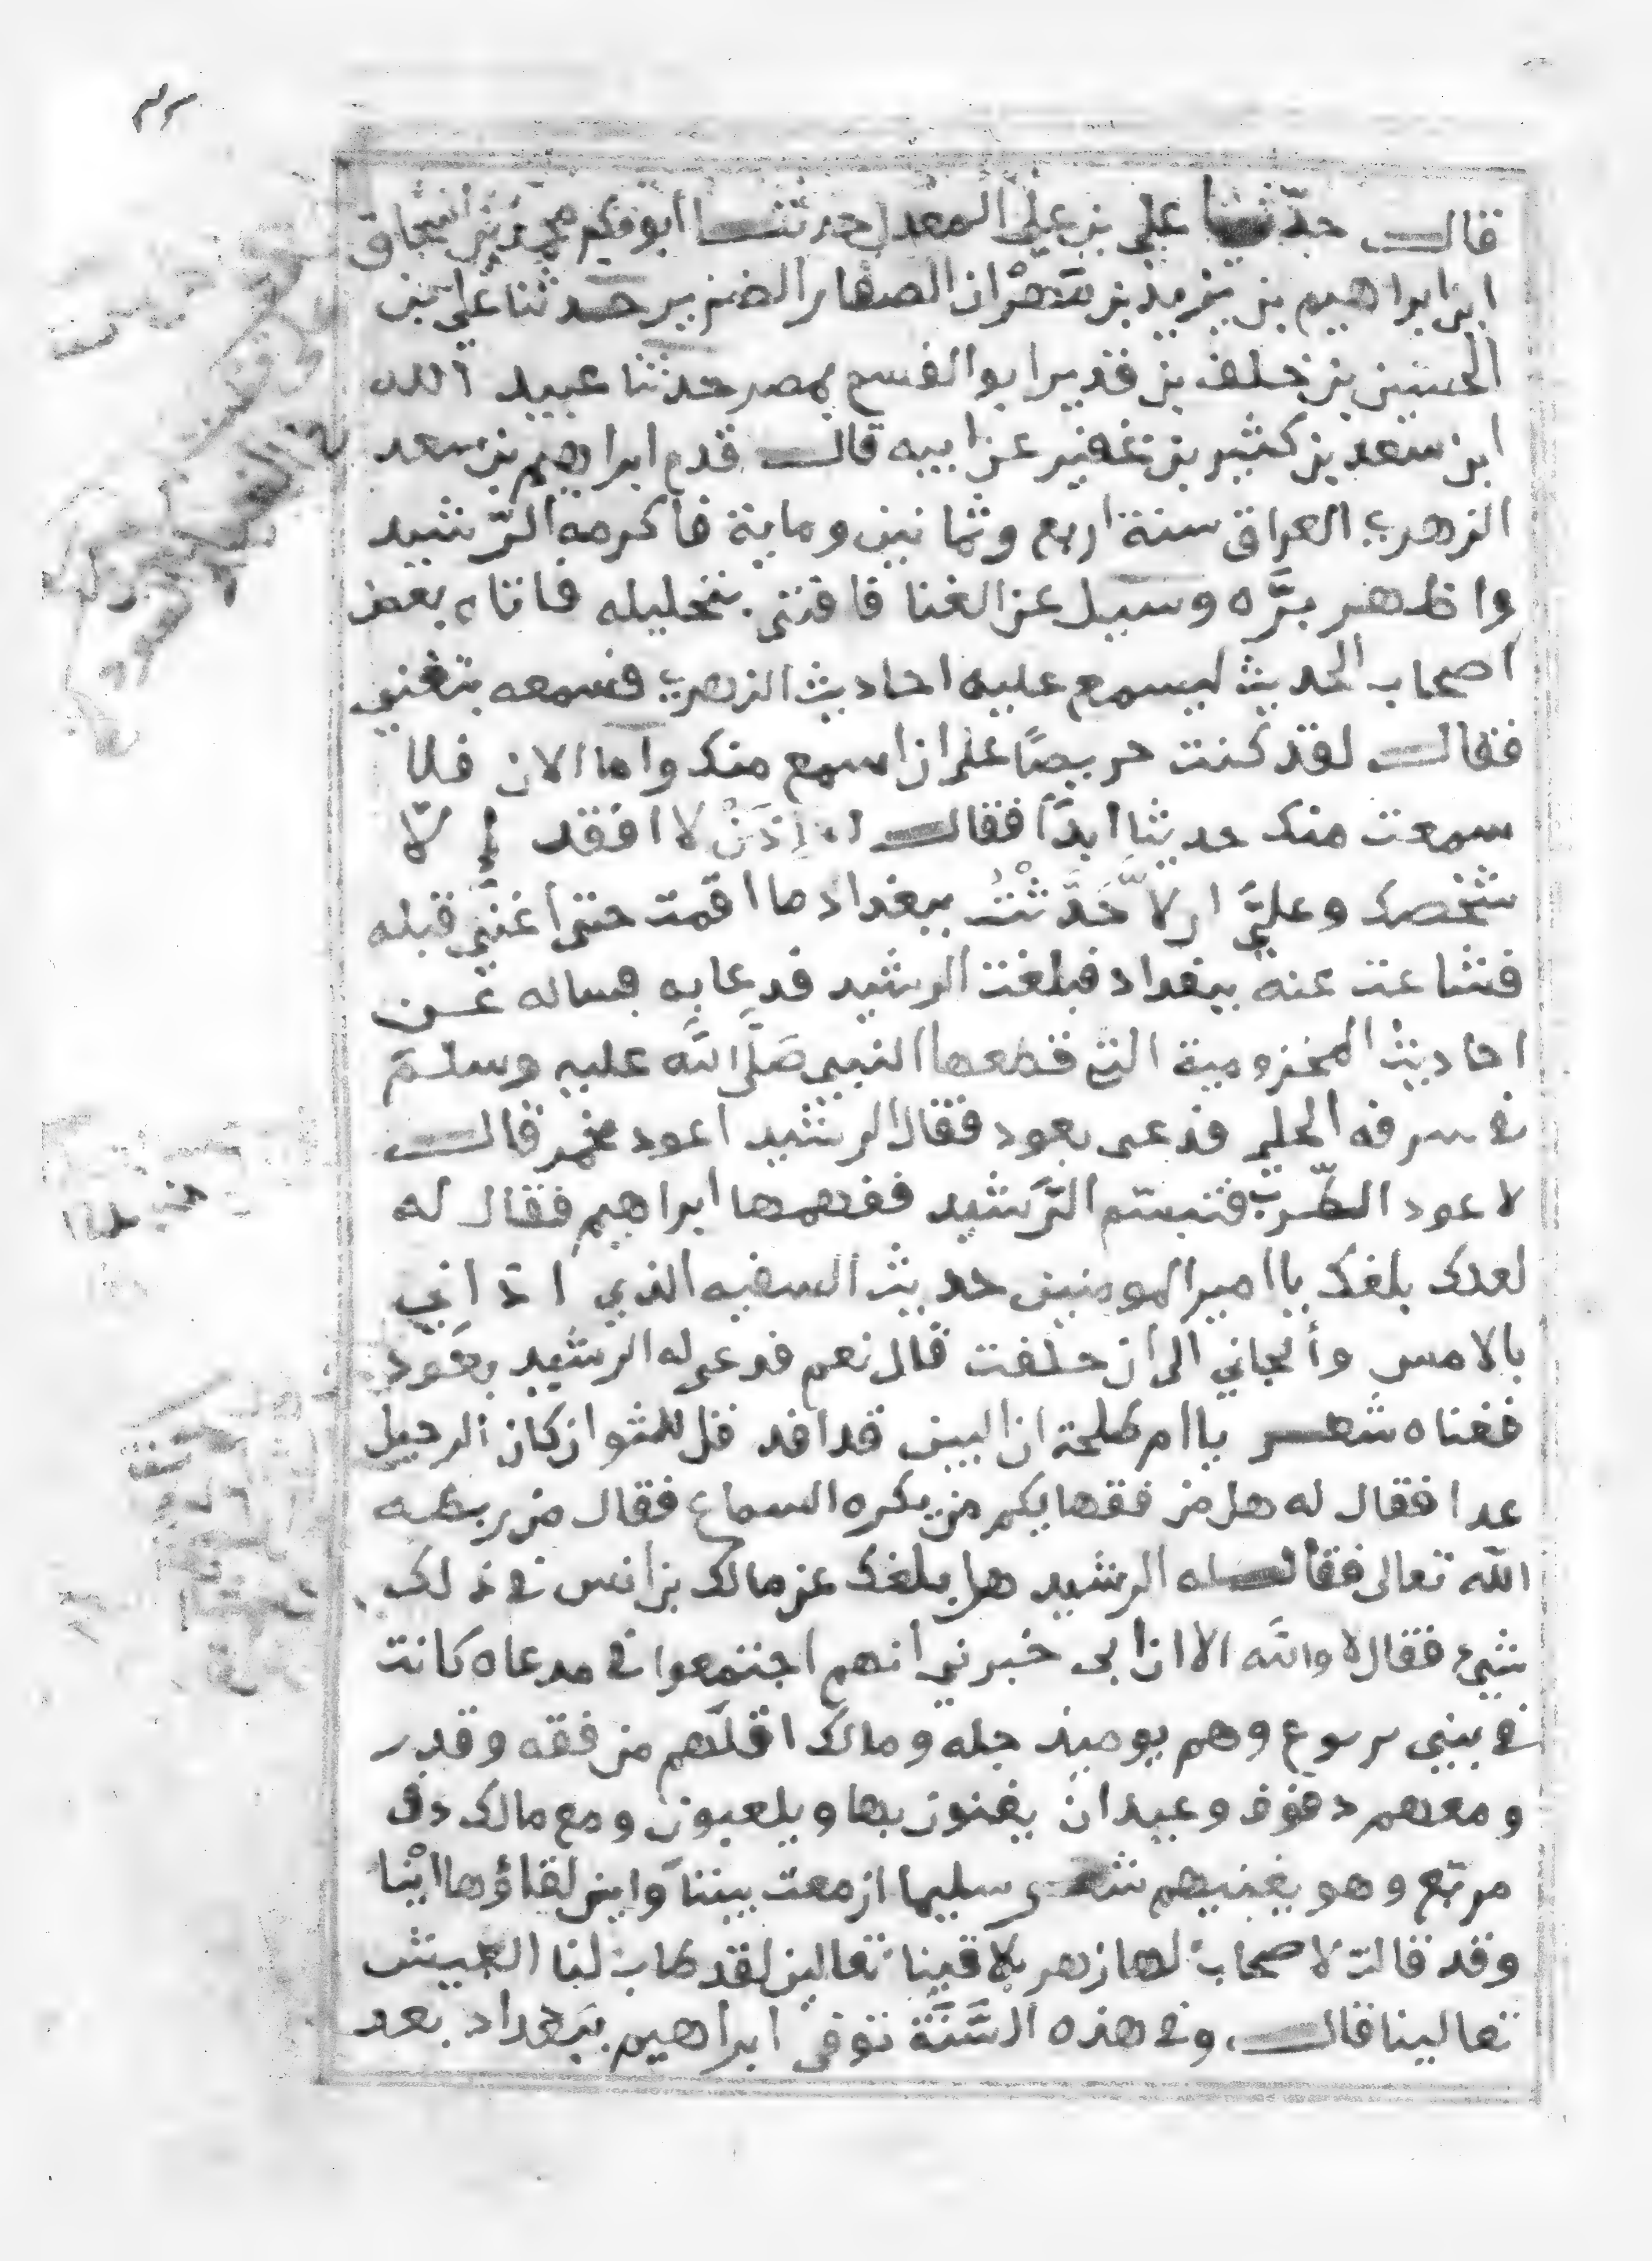 قالــ حدّثنا علي بن علي المعدل حدثنــا ابو بكر محمد بن اسحاق
ابن ابراهيم بن يزيد بن مهران الصفار الضرير حدثنا علي بن
الحسين بن خلف بن قدير ابو القسم بمصر حدثنا عبيد الله
ابن سعد بن كثير بن عفير عن ابيه قالــ قدم ابراهيم بن سعد
الزهري العراق سنة اربع وثمانين وماية فاكرمه الرّشيد
واظهر برَّه وسيل عن الغنا فافتى بتحليله فاتاه بعض
اصحاب الحديث ليسمع عليه احاديث الزهري فسمعه يتغنى
فقالــ لقد كنت حريصًا على ان اسمع منك واما الان فلا
سمعت منك حديثا ابدًا فقالــ اذن لا افقد إلّا
شخصك وعليَّ ان لاّ حَدَّثْتُ ببغداد ما اقمت حتى اغنّي قبله
فشاعت عنه ببغداد فبلغت الرشيد فدعا به فساله عن
احاديث المخزومية التي قطعها النبي صَلَّى الله عليه وسلّم
في سرقه الحلي فدعى بعود فقال الرشيد اعود مجمر قالــ
لا عود الطّرب فتبسّم الرَّشيد ففهمها ابراهيم فقال له
لعلك بلغك يا امير المومنين حديث السفيه الذي اذاني
بالامس وألجاني الى ان حلفت قال نعم فدعى له الرشيد بعود
فغناه شعــر يا ام طلحة ان البين قد افد قل للثوا ن كان الرحيل
غدا فقال له هل من فقهايكم من يكره السماع فقال من ربطه
الله تعالى فقالــ له الرشيد هل بلغك عن مالك بن انس في ذلك
شيء فقال لا والله الا ان ابى خبرني انهم اجتمعوا في مدعاه كانت
في بني يربوع وهم يوميذ جله ومالك اقلّهم من فقه وقدر
ومعهم دفوف وعيدان يغنون بها ويلعبون ومع مالك دف
مربّع وهو يغنيهم شعر سليما ازمعت بيننا واين لقاؤها اينا
وقد قالت لاصحاب لها زهر تلاقينا تعالين لقد طاب لنا العيش
تعالينا قالــ، وفي هذه السَّنَّة توفى ابراهيم ببغداد بعد